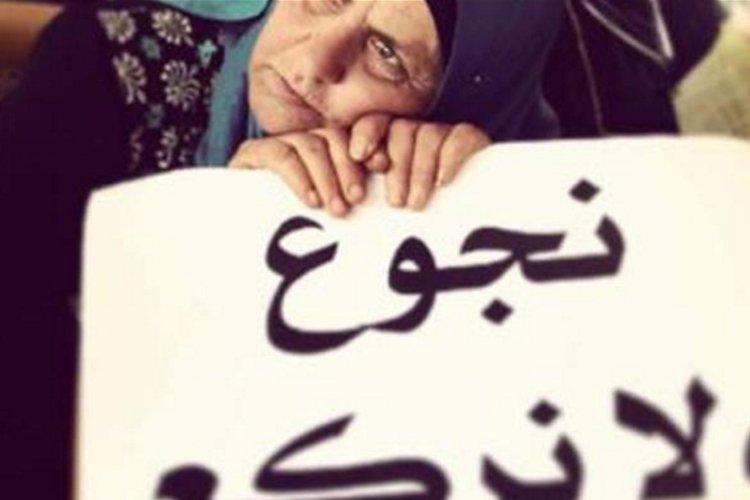 نجوع
ولا نركع